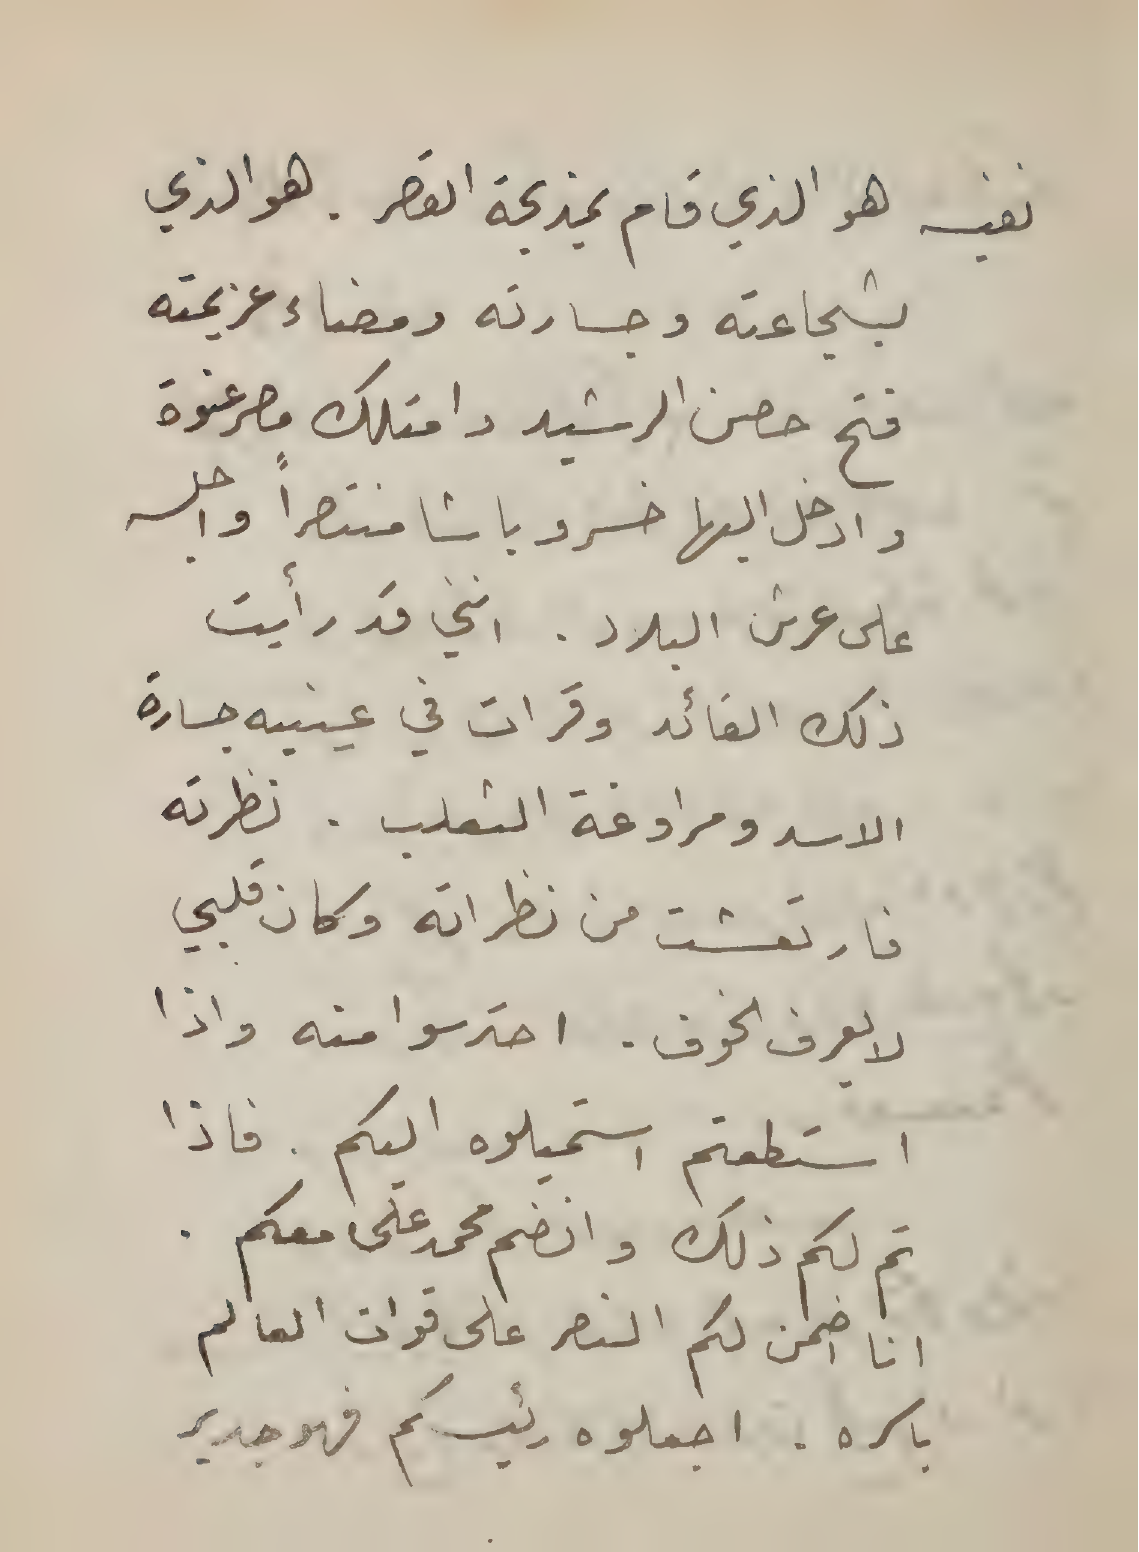 نفسه هو الذي قام بمذبحة القصر . هو الذي
بشجاعته وجسارته ومضاء عزيمته
فتح حصن الرشيد وامتلك مصر عنوة
وادخل اليها خسرو باشا منتصراً واجلسه
على عرش البلاد . انني قد رأيت
ذلك القائد وقرات في عينيه جسارة
الاسد ومراوغة الثعلب . نظرته
فارتعشت من نظراته وكان قلبي
لا يعرف الخوف . احترسوا منه واذا
استطعتم استميلوه اليكم . فاذا
تم لكم ذلك وانضم محمد علي معكم .
انا اضمن لكم النصر على قوات العالم
باسره . اجعلوه رئيسكم فهو جدير